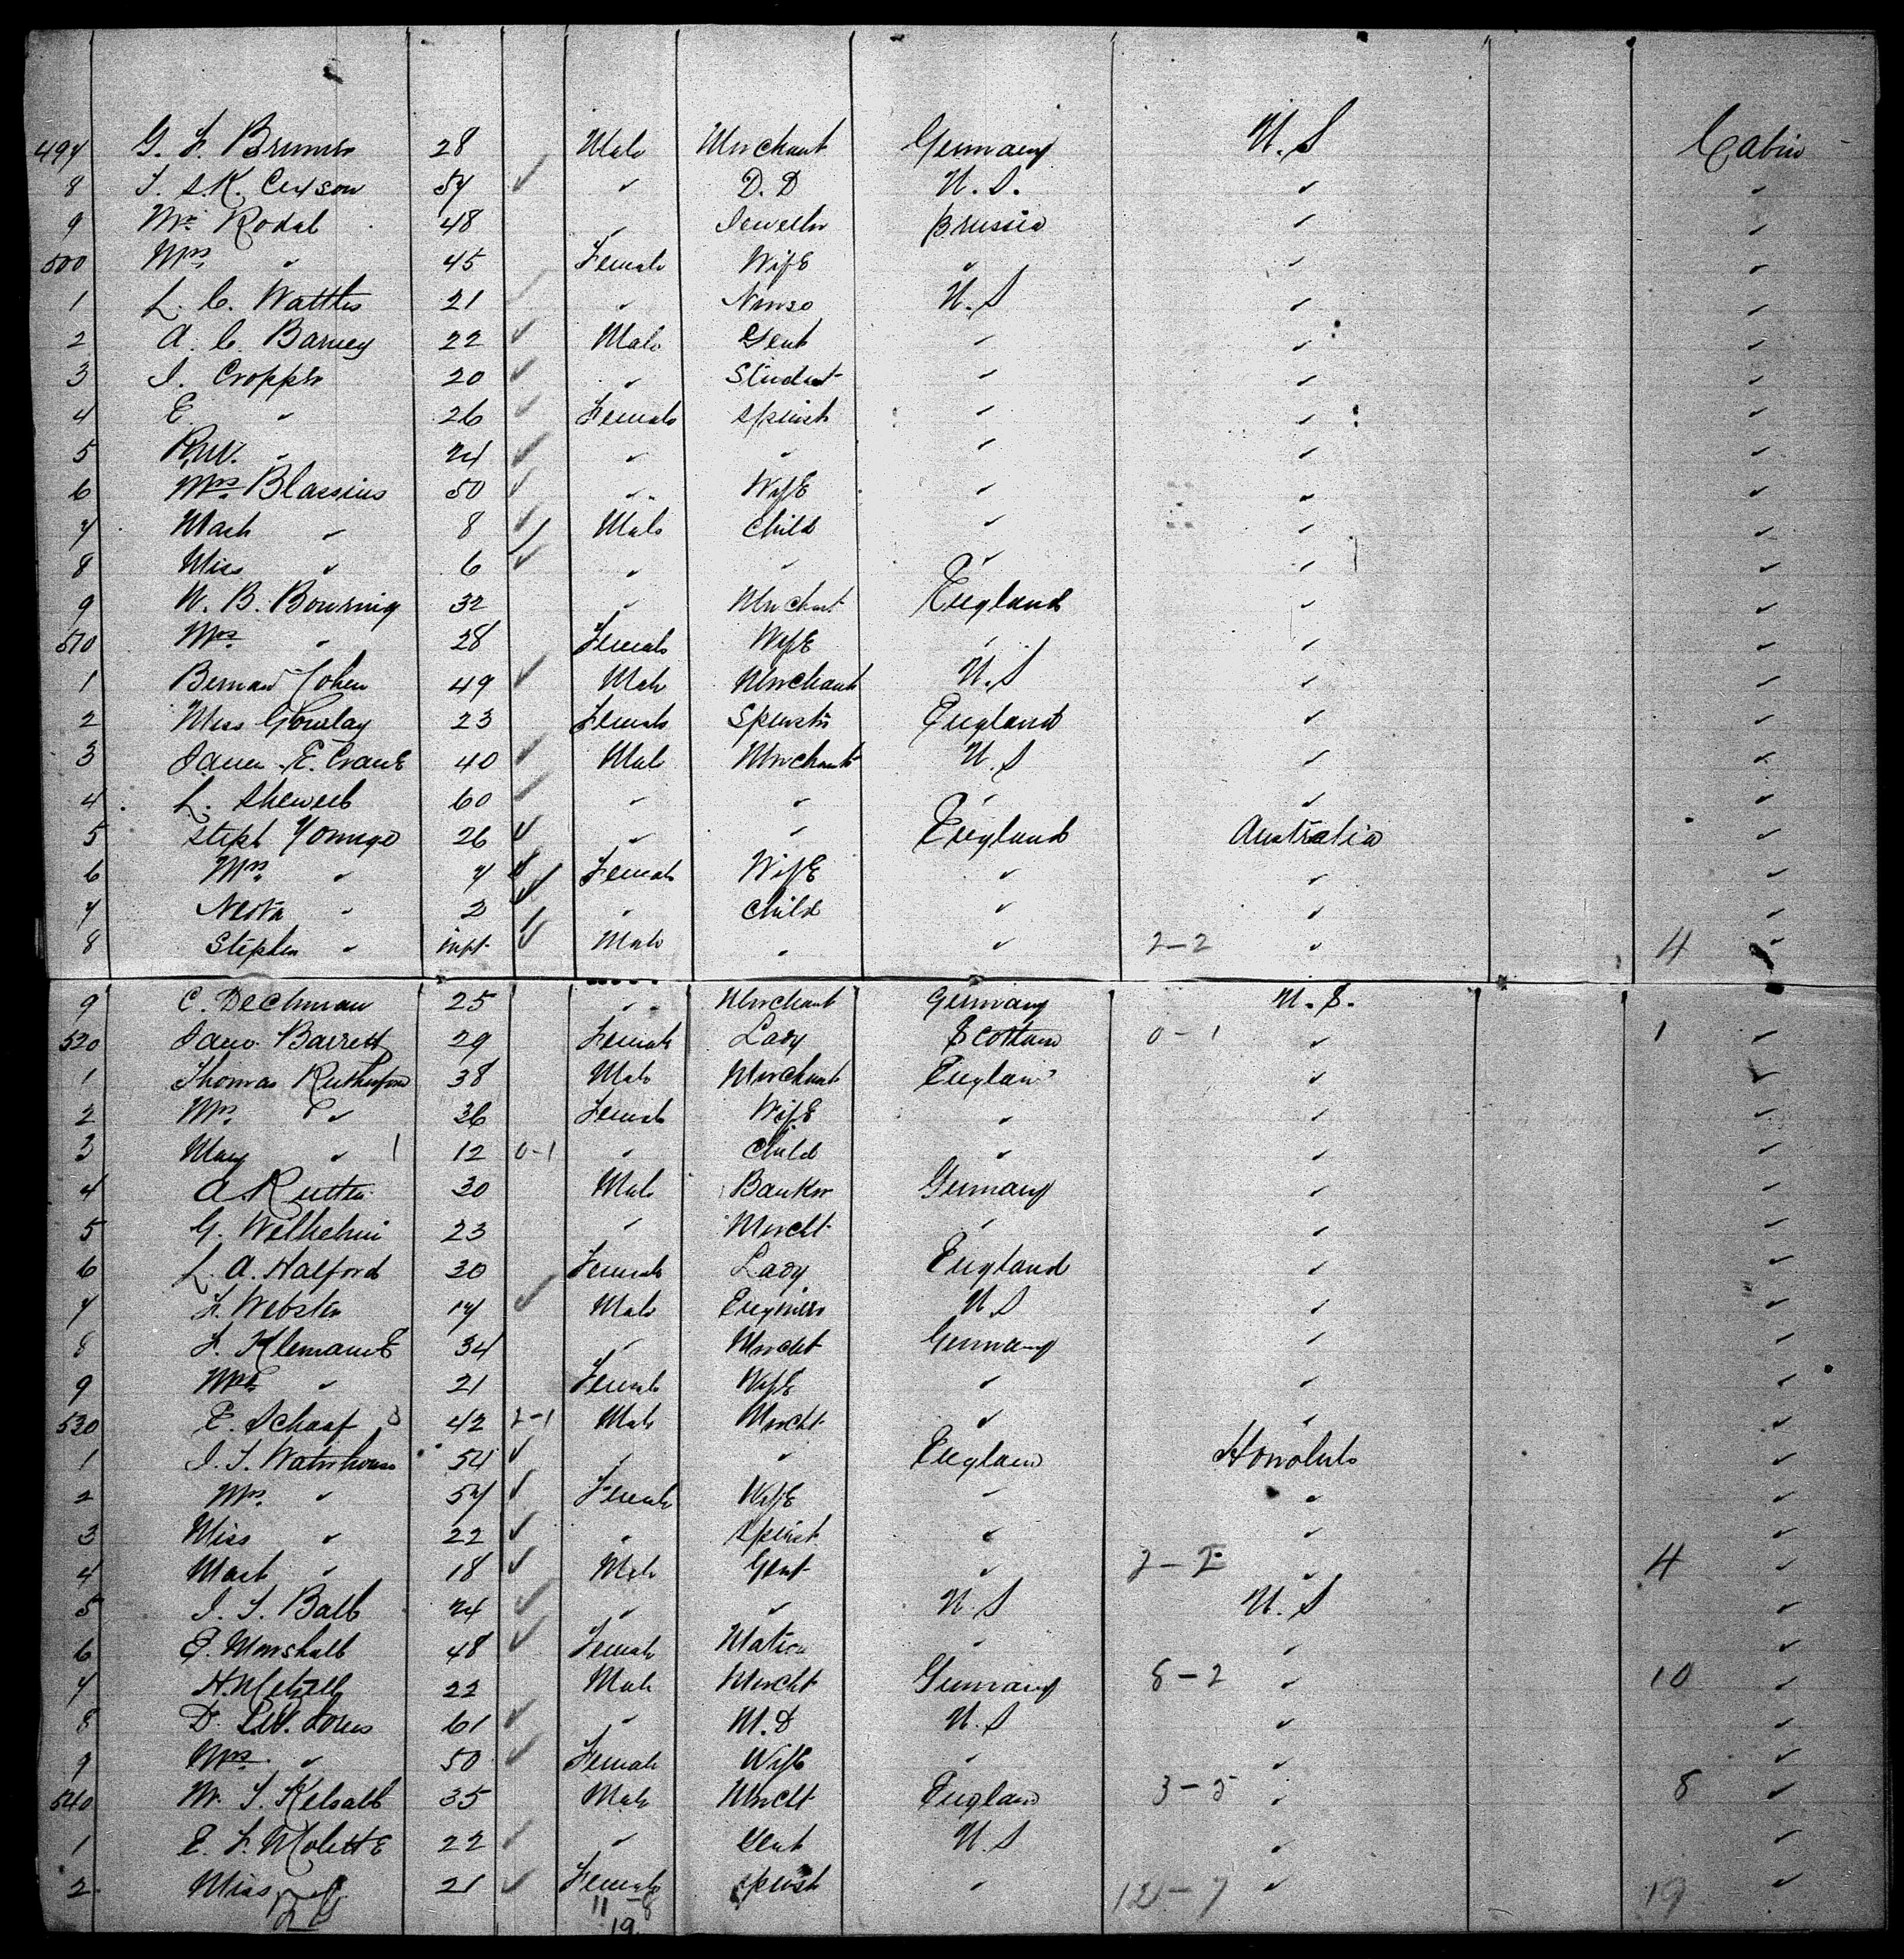 497 G. F. Brunier 28 Male Merchant Germany U.S Cabin
8 54 ✓ ✓ D.D U.S. ✓ ✓
9 Mr Rodal 48 ✓ Jeweller Prussia ✓ ✓
500 Mrs ✓ 45 Female Wife ✓ ✓ ✓
1 L. C. Wattles 21 ✓ Nurse U.S ✓ ✓
2 A. C. Barney 22 ✓ Male Gent ✓ ✓ ✓
3 J. Cropper 20 ✓ ✓ Student ✓ ✓ ✓
4 E. ✓ 26 ✓ Female Spinst ✓ ✓ ✓
5 ✓ 24 ✓ ✓ ✓ ✓ ✓ ✓
6 Mrs Blassius 50 ✓ ✓ Wife ✓ ✓ ✓
7 Mast ✓ 8 ✓ Male Child ✓ ✓ ✓
8 Miss ✓ 6 ✓ ✓ ✓ ✓ ✓ ✓
9 W. B. Bowring 32 ✓ Merchant England ✓ ✓
510 Mrs ✓ 28 Female Wife ✓ ✓ ✓
1 Bernard Cohen 49 ✓ Male Merchant U.S ✓ ✓
2 Miss Gourlay 23 Female Spinster England ✓ ✓
3 James E. Crane 40 ✓ Male Merchant U.S ✓ ✓
4 L. Shewell 60 ✓ ✓ ✓ ✓ ✓ ✓
5 Steph Younge 26 ✓ ✓ ✓ England Australia ✓
6 Mrs ✓ ✓ Female Wife ✓ ✓ ✓
7 ✓ 2 ✓ ✓ Child ✓ ✓ ✓
8 Stephen ✓ inft ✓ Male ✓ ✓ 2-2 ✓ 4 ✓
9 C. Dechman 25 ✓ Merchant Germany U.S.
520 Jane Barrett 29 Female Lady Scotland 0-1 ✓ 1 ✓
1 Thomas Rutherford 38 Male Merchant England ✓ ✓
2 Mrs ✓ 36 Female Wife ✓ ✓ ✓
3 Mary ✓ 1 12 0-1 ✓ Child ✓ ✓ ✓
4 A. 30 Male Banker Germany ✓ ✓
5 G. Wilhelmi 23 ✓ Mercht ✓ ✓ ✓
6 L. A. Halford 30 Female Lady England ✓ ✓
7 F. Webster ✓ Male Engineer U.S ✓ ✓
8 F. 34 ✓ Mercht Germany ✓ ✓
9 Mrs ✓ 21 Female Wife ✓ ✓ ✓
530 E. Schaaf 3 42 2-1 Male Mercht ✓ ✓ ✓
1 J. T. Waterhouse 54 ✓ ✓ ✓ England Honolulu ✓
2 Mrs ✓ 54 ✓ Female Wife ✓ ✓ ✓
3 Miss ✓ 22 ✓ ✓ Spinst ✓ ✓ ✓
4 Mast ✓ 18 ✓ Male Gent ✓ 2-2 ✓ 4 ✓
5 J. S. Ball 24 ✓ ✓ ✓ U.S U.S ✓
6 E. Marshall 48 ✓ Female Matron ✓ ✓ ✓
7 22 Male Mercht Germany 8-2 ✓ 10 ✓
8 61 ✓ ✓ M.D U.S ✓ ✓
9 Mrs ✓ 50 ✓ Female Wife ✓ ✓ ✓
540 Mr. T. Kelsall 35 Male Mercht England 3-5 ✓ 8 ✓
1 E. F. Molette 22 ✓ ✓ Gent U.S ✓ ✓
2 Miss ✓ 21 ✓ Female Spinst ✓ 12-7 ✓ 19 ✓
11-8
19